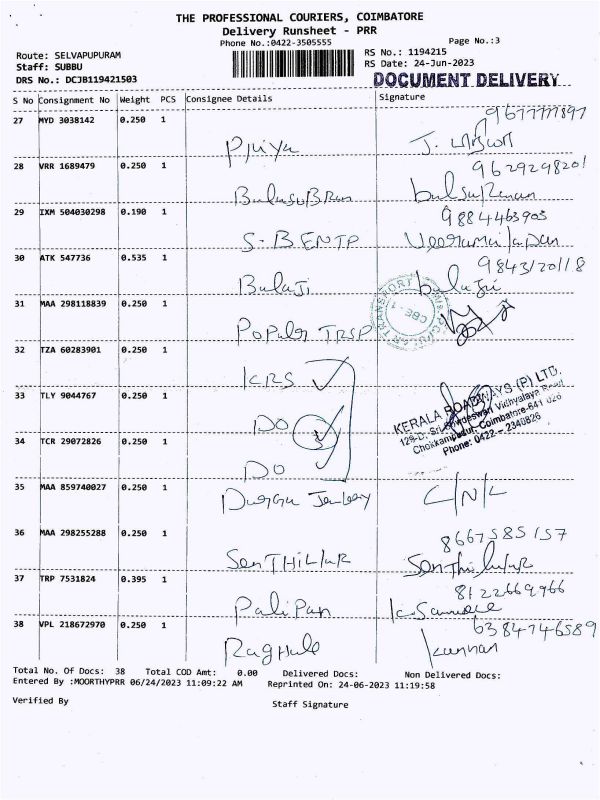 THE PROFESSIONAL COURIERS, COIMBATORE
Delivery Runsheet - PRR
Phone No.:0422-3505555 Page No.:3
Route: SELVAPUPURAM RS No.: 1194215
Staff: SUBBU RS Date: 24-Jun-2023
DRS No.: DCJB119421503 DOCUMENT DELIVERY
S No Consignment No Weight PCS Consignee Details Signature
27 MYD 3038142 0.250 1
Priya J.
28 VRR 1689479 0.250 1 9629298201
29 IXM 504030298 0.190 1 9884463903
S. BENTP
30 ATK 547736 0.535 1 9843120118
Balaji balaji
31 MAA 298118839 0.250 1
32 TZA 60283901 0.250 1
KRS
33 TLY 9044767 0.250 1
DO
KERALA ROADWAYS (P) LTD.
Coimbatore-641
Phone: 0422 - 2340826
34 TCR 29072826 0.250 1
DO
35 MAA 859740027 0.250 1
C/N/L
36 MAA 298255288 0.250 1 8667585157
37 TRP 7531824 0.395 1 8122669966
38 VPL 218672970 0.250 1 6384746589
kannan
Total No. Of Docs: 38 Total COD Amt: 0.00 Delivered Docs: Non Delivered Docs:
Entered By :MOORTHYPRR 06/24/2023 11:09:22 AM Reprinted On: 24-06-2023 11:19:58
Verified By Staff Signature